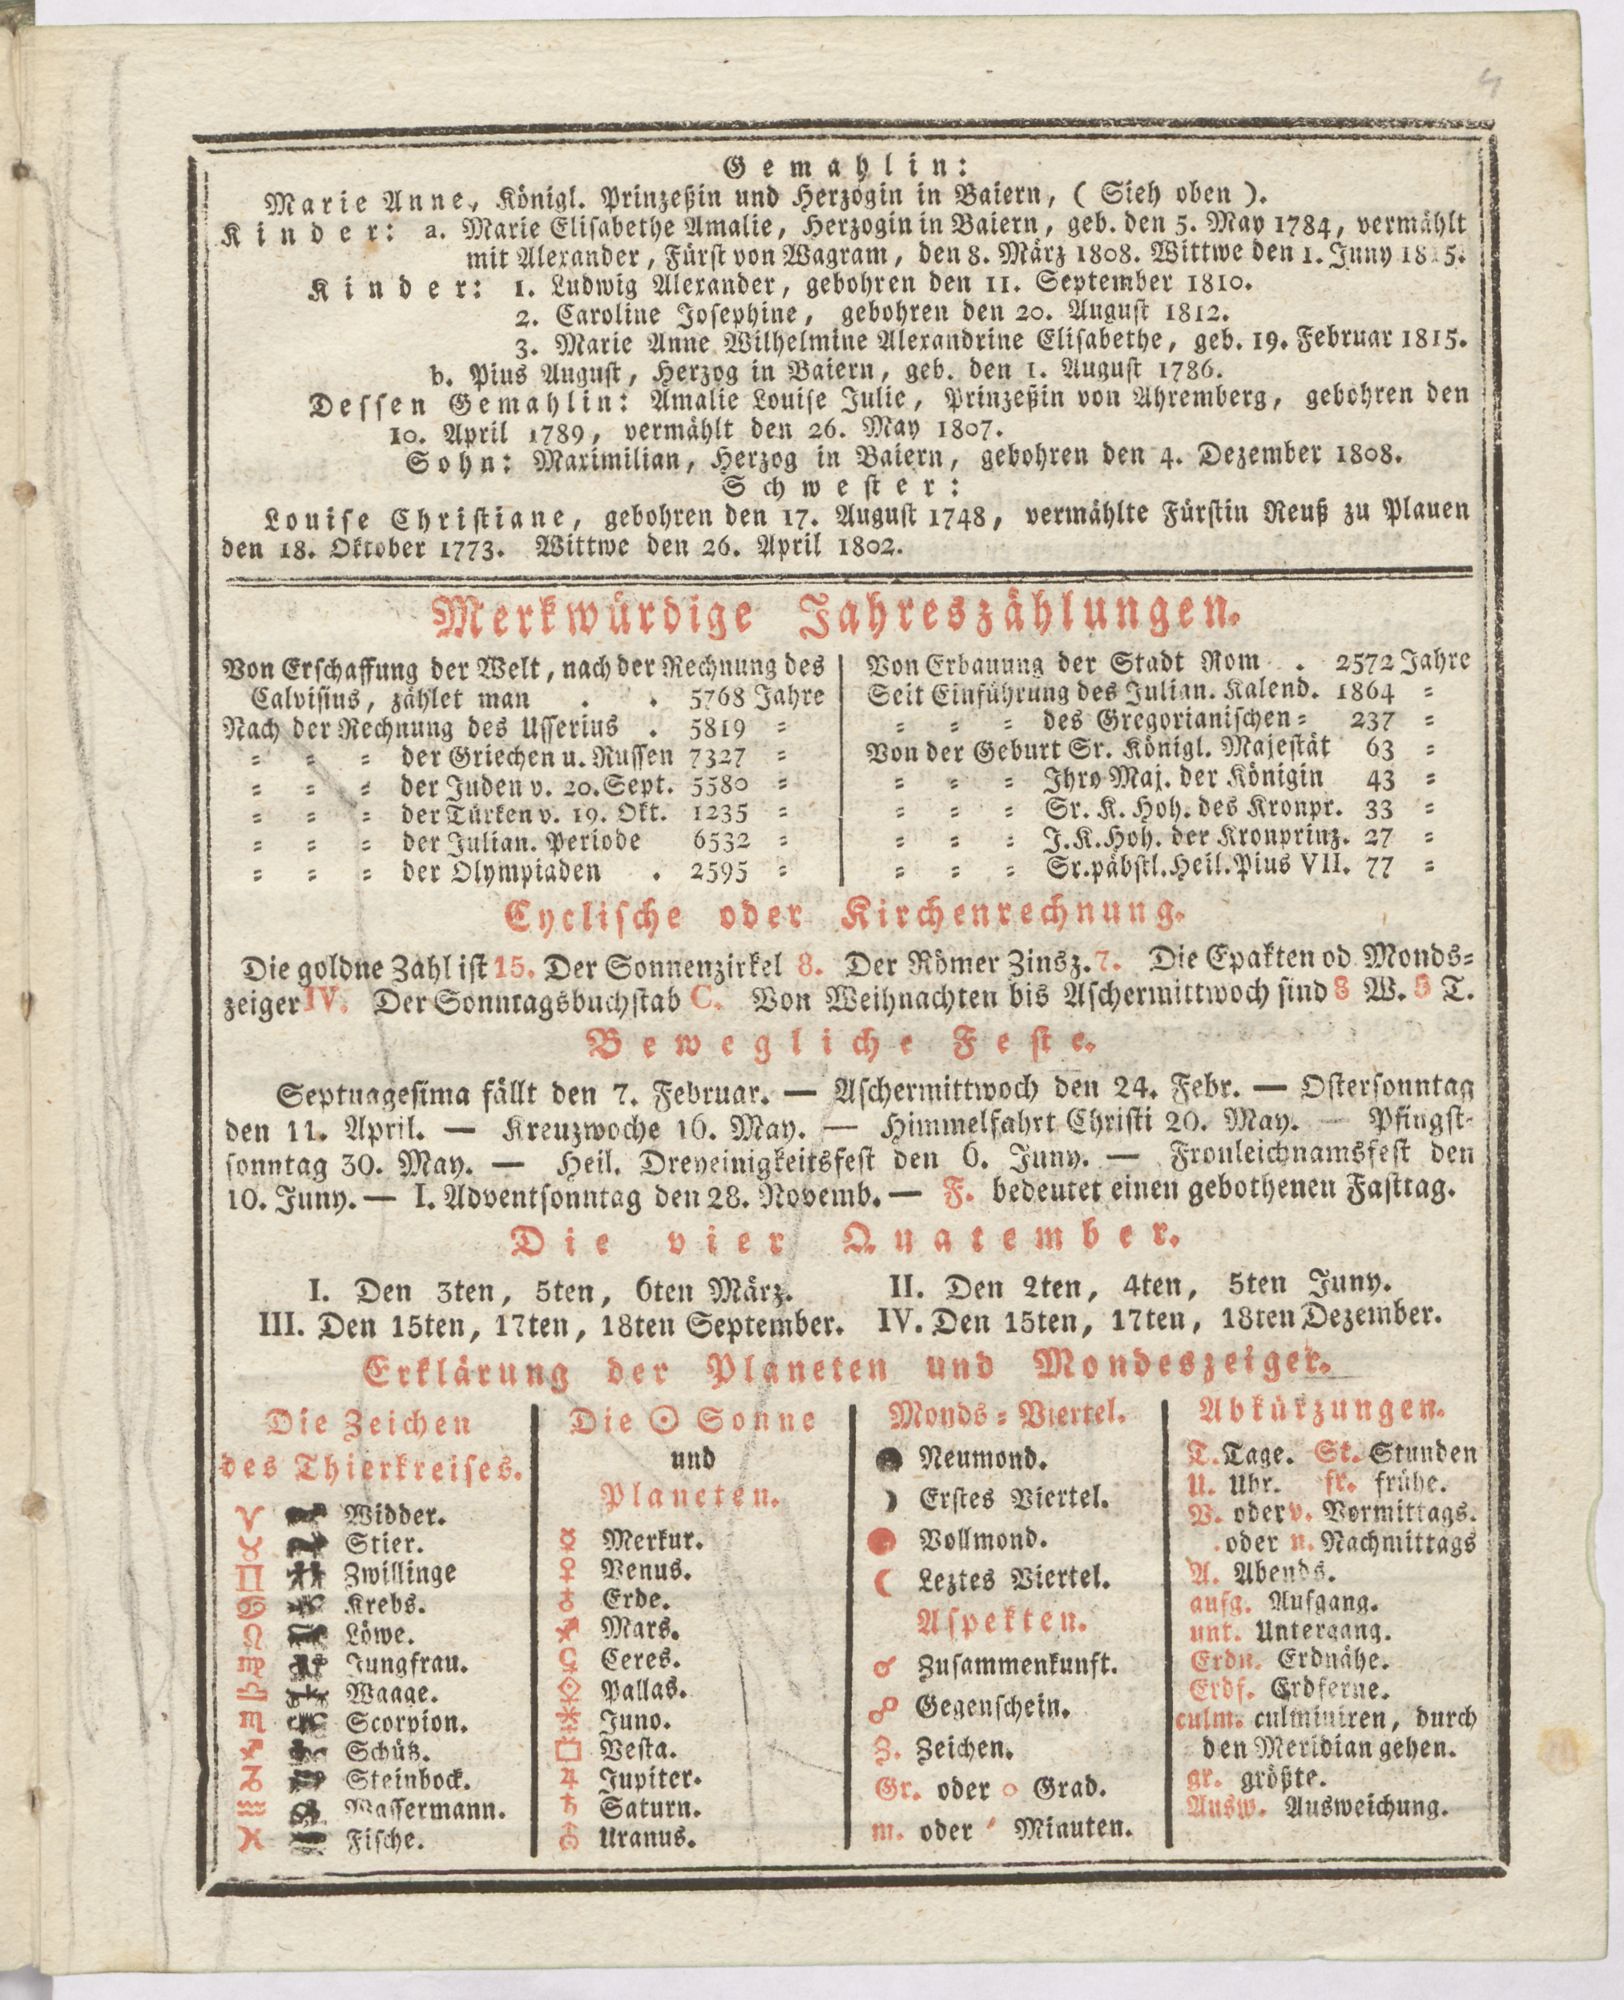 Gemahlin:
Marie Anne, Königl. Prinzeßin und Herzogin in Baiern, ( Sieh oben ).
Kinder: a. Marie Elisabethe Amalie, Herzogin in Baiern, geb. den 5. May 1784, vermählt
mit Alexander, Fürst von Wagram, den 8. März 1808. Wittwe den 1. Juny 1815.
Kinder: 1. Ludwig Alexander, gebohren den 11. September 1810.
2. Caroline Josephine, gebohren den 20. August 1812.
3. Marie Anne Wilhelmine Alexandrine Elisabethe, geb. 19. Februar 1815.
b. Pius August, Herzog in Baiern, geb. den 1. August 1786.
Dessen Gemahlin: Amalie Louise Julie, Prinzeßin von Ahremberg, gebohren den
10. April 1789, vermählt den 26. May 1807.
Sohn: Maximilian, Herzog in Baiern, gebohren den 4. Dezember 1808.
Schwester:
Louise Christiane, gebohren den 17. August 1748, vermählte Fürstin Reuß zu Plauen
den 18. Oktober 1773. Wittwe den 26. April 1802.
Merkwürdige Jahreszählungen.
Von Erschaffung der Welt, nach der Rechnung des
Calvisius, zählet man . . 5768 Jahre
Nach der Rechnung des Usserius . 5819 =
= = = der Griechen u. Russen 7327 =
= = = der Juden v. 20. Sept. 5580 =
= = = der Türken v. 19. Okt. 1235 =
= = = der Julian. Periode 6532 =
= = = der Olympiaden . 2595 =
Von Erbauung der Stadt Rom . 2572 Jahre
Seit Einführung des Julian. Kalend. 1864 =
= = = des Gregorianischen = 237 =
Von der Geburt Sr. Königl. Majestät 63 =
= = = Ihro Maj. der Königin 43 =
= = = Sr. K. Hoh. des Kronpr. 33 =
= = = J. K. Hoh. der Kronprinz. 27 =
= = = Sr. päbstl. Heil. Pius VII. 77 =
Cyclische oder Kirchenrechnung.
Die goldne Zahl ist 15. Der Sonnenzirkel 8. Der Römer Zinsz. 7. Die Epakten od Monds=
zeiger IV. Der Sonntagsbuchstab C. Von Weihnachten bis Aschermittwoch sind 8 W. 5 T.
Bewegliche Feste.
Septuagesima fällt den 7. Februar. — Aschermittwoch den 24. Febr. — Ostersonntag
den 11. April. — Kreuzwoche 16. May. — Himmelfahrt Christi 20. May. — Pfingst-
sonntag 30. May. — Heil. Dreyeinigkeitsfest den 6. Juny. — Fronleichnamsfest den
10. Juny. — I. Adventsonntag den 28. Novemb. — F. bedeutet einen gebothenen Fasttag.
Die vier Quatember.
I. Den 3ten, 5ten, 6ten März. II. Den 2ten, 4ten, 5ten Juny.
III. Den 15ten, 17ten, 18ten September. IV. Den 15ten, 17ten, 18ten Dezember.
Erklärung der Planeten und Mondeszeiger.
Die Zeichen
des Thierkreises.
♈ Widder.
♉ Stier.
♊ Zwillinge
♋ Krebs.
♌ Löwe.
♍ Jungfrau.
♎ Waage.
♏ Scorpion.
♐ Schütz.
♑ Steinbock.
♒ Wassermann.
♓ Fische.
Die ☉ Sonne
und
Planeten.
☿ Merkur.
♀ Venus.
♁ Erde.
♂ Mars.
⚳ Ceres.
⚴ Pallas.
⚵ Juno.
⚶ Vesta.
♃ Jupiter.
♄ Saturn.
♅ Uranus.
Monds = Viertel.
Neumond.
Erstes Viertel.
Vollmond.
Leztes Viertel.
Aspekten.
☌ Zusammenkunft.
☍ Gegenschein.
Z. Zeichen.
Gr. oder ○ Grad.
m. oder ′ Minuten.
Abkürzungen.
T. Tage. St. Stunden
U. Uhr. fr. frühe.
V. oder v. Vormittags.
. oder n. Nachmittags
A. Abends.
aufg. Aufgang.
unt. Untergang.
Erdn. Erdnähe.
Erdf. Erdferne.
culm. culminiren, durch
den Meridian gehen.
gr. größte.
Ausw. Ausweichung.